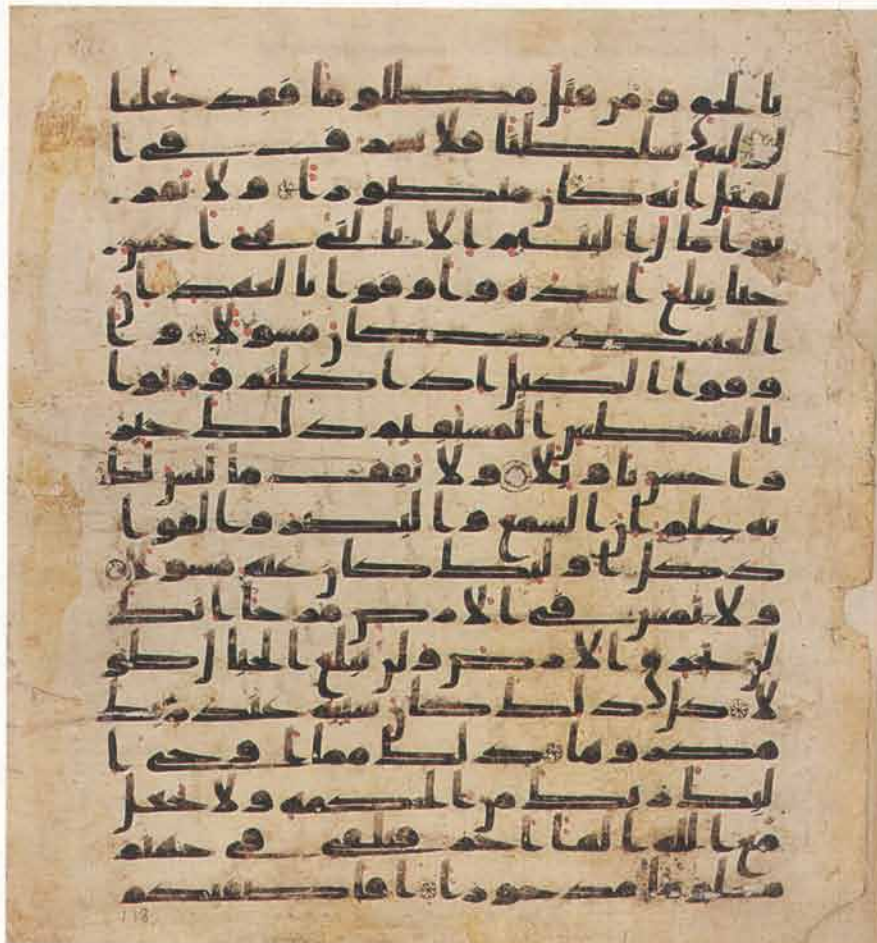 بالحق ومن قتل مظلوما فقد جعلنا
لوليه سلطنا فلا يسرف في ا
لقتل انه كان منصورا ولا تقر
بوا مال اليتيم الا بالتي هي احسن
حتى يبلغ اشده واوفوا بالعهد ان
العهد كان مسولا وا
وفوا الكيل اذا كلتم وزنوا
بالقسطس المستقيم ذلك خير
واحسن تاويلا ولا تقف ما ليس لك
به علم ان السمع والبصر والفوا
د كل اوليك كان عنه مسولا
ولا تمش في الارض مرحا انك
لن تخرق الارض ولن تبلغ الجبال طو
لا كل ذلك كان سيه عند ربك
مكروها ذلك مما اوحى ا
ليك ربك من الحكمه ولا تجعل
مع الله الها اخر فتلقى في جهنم
ملوما مدحورا افاصفيكم
118